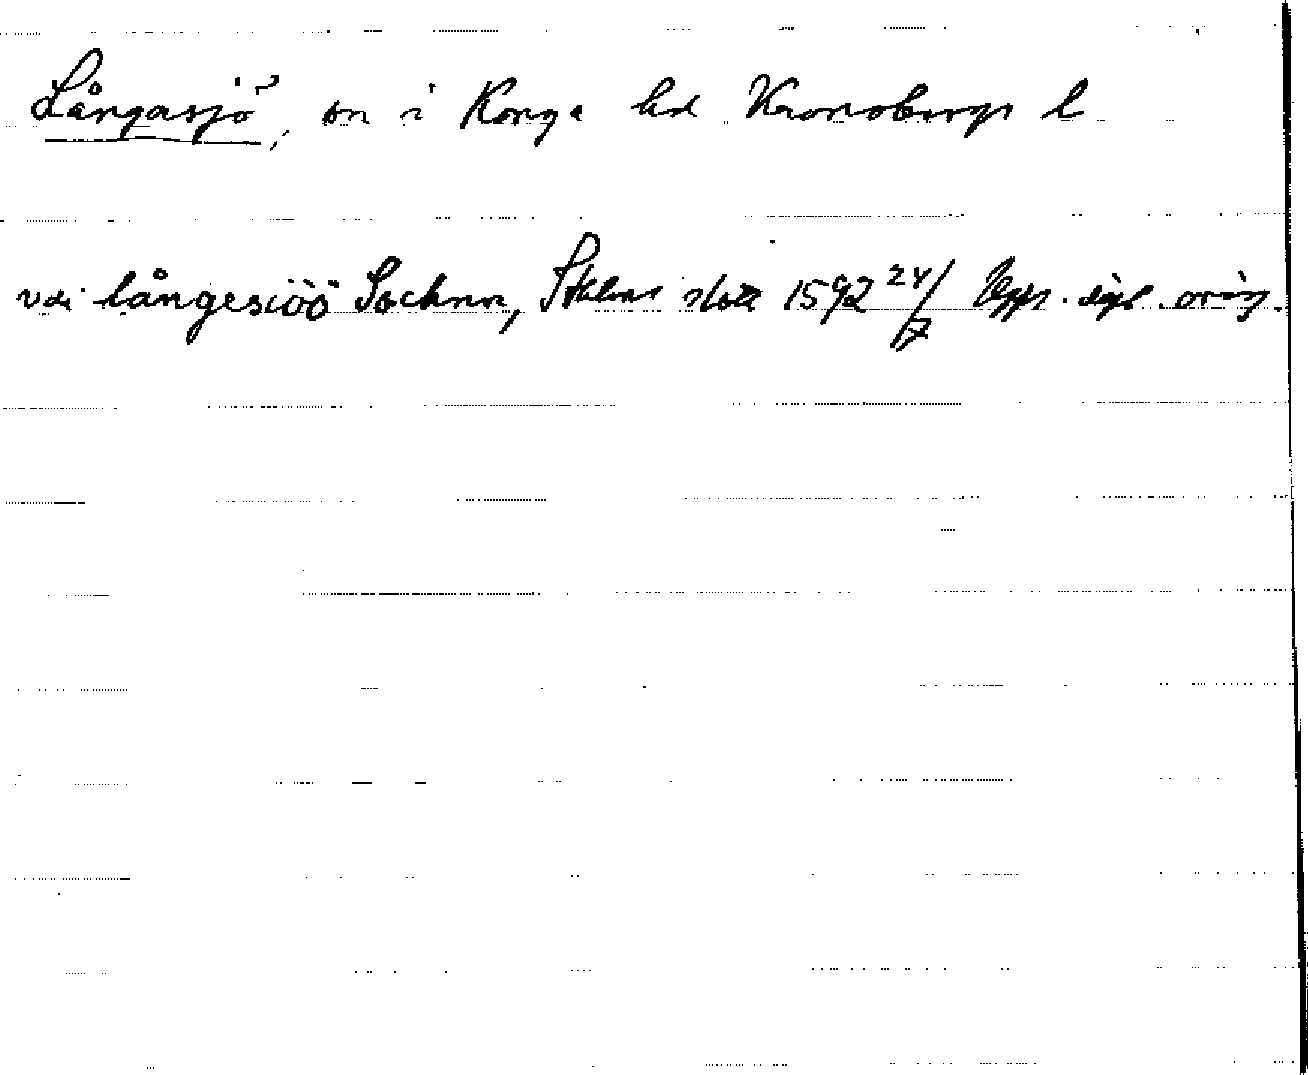 Långasjö, sn i Konga hd Kronobergs l
vdi långesiöö Sochnn, Sthlms slott 1592 24/7 Upps. dipl. orig.